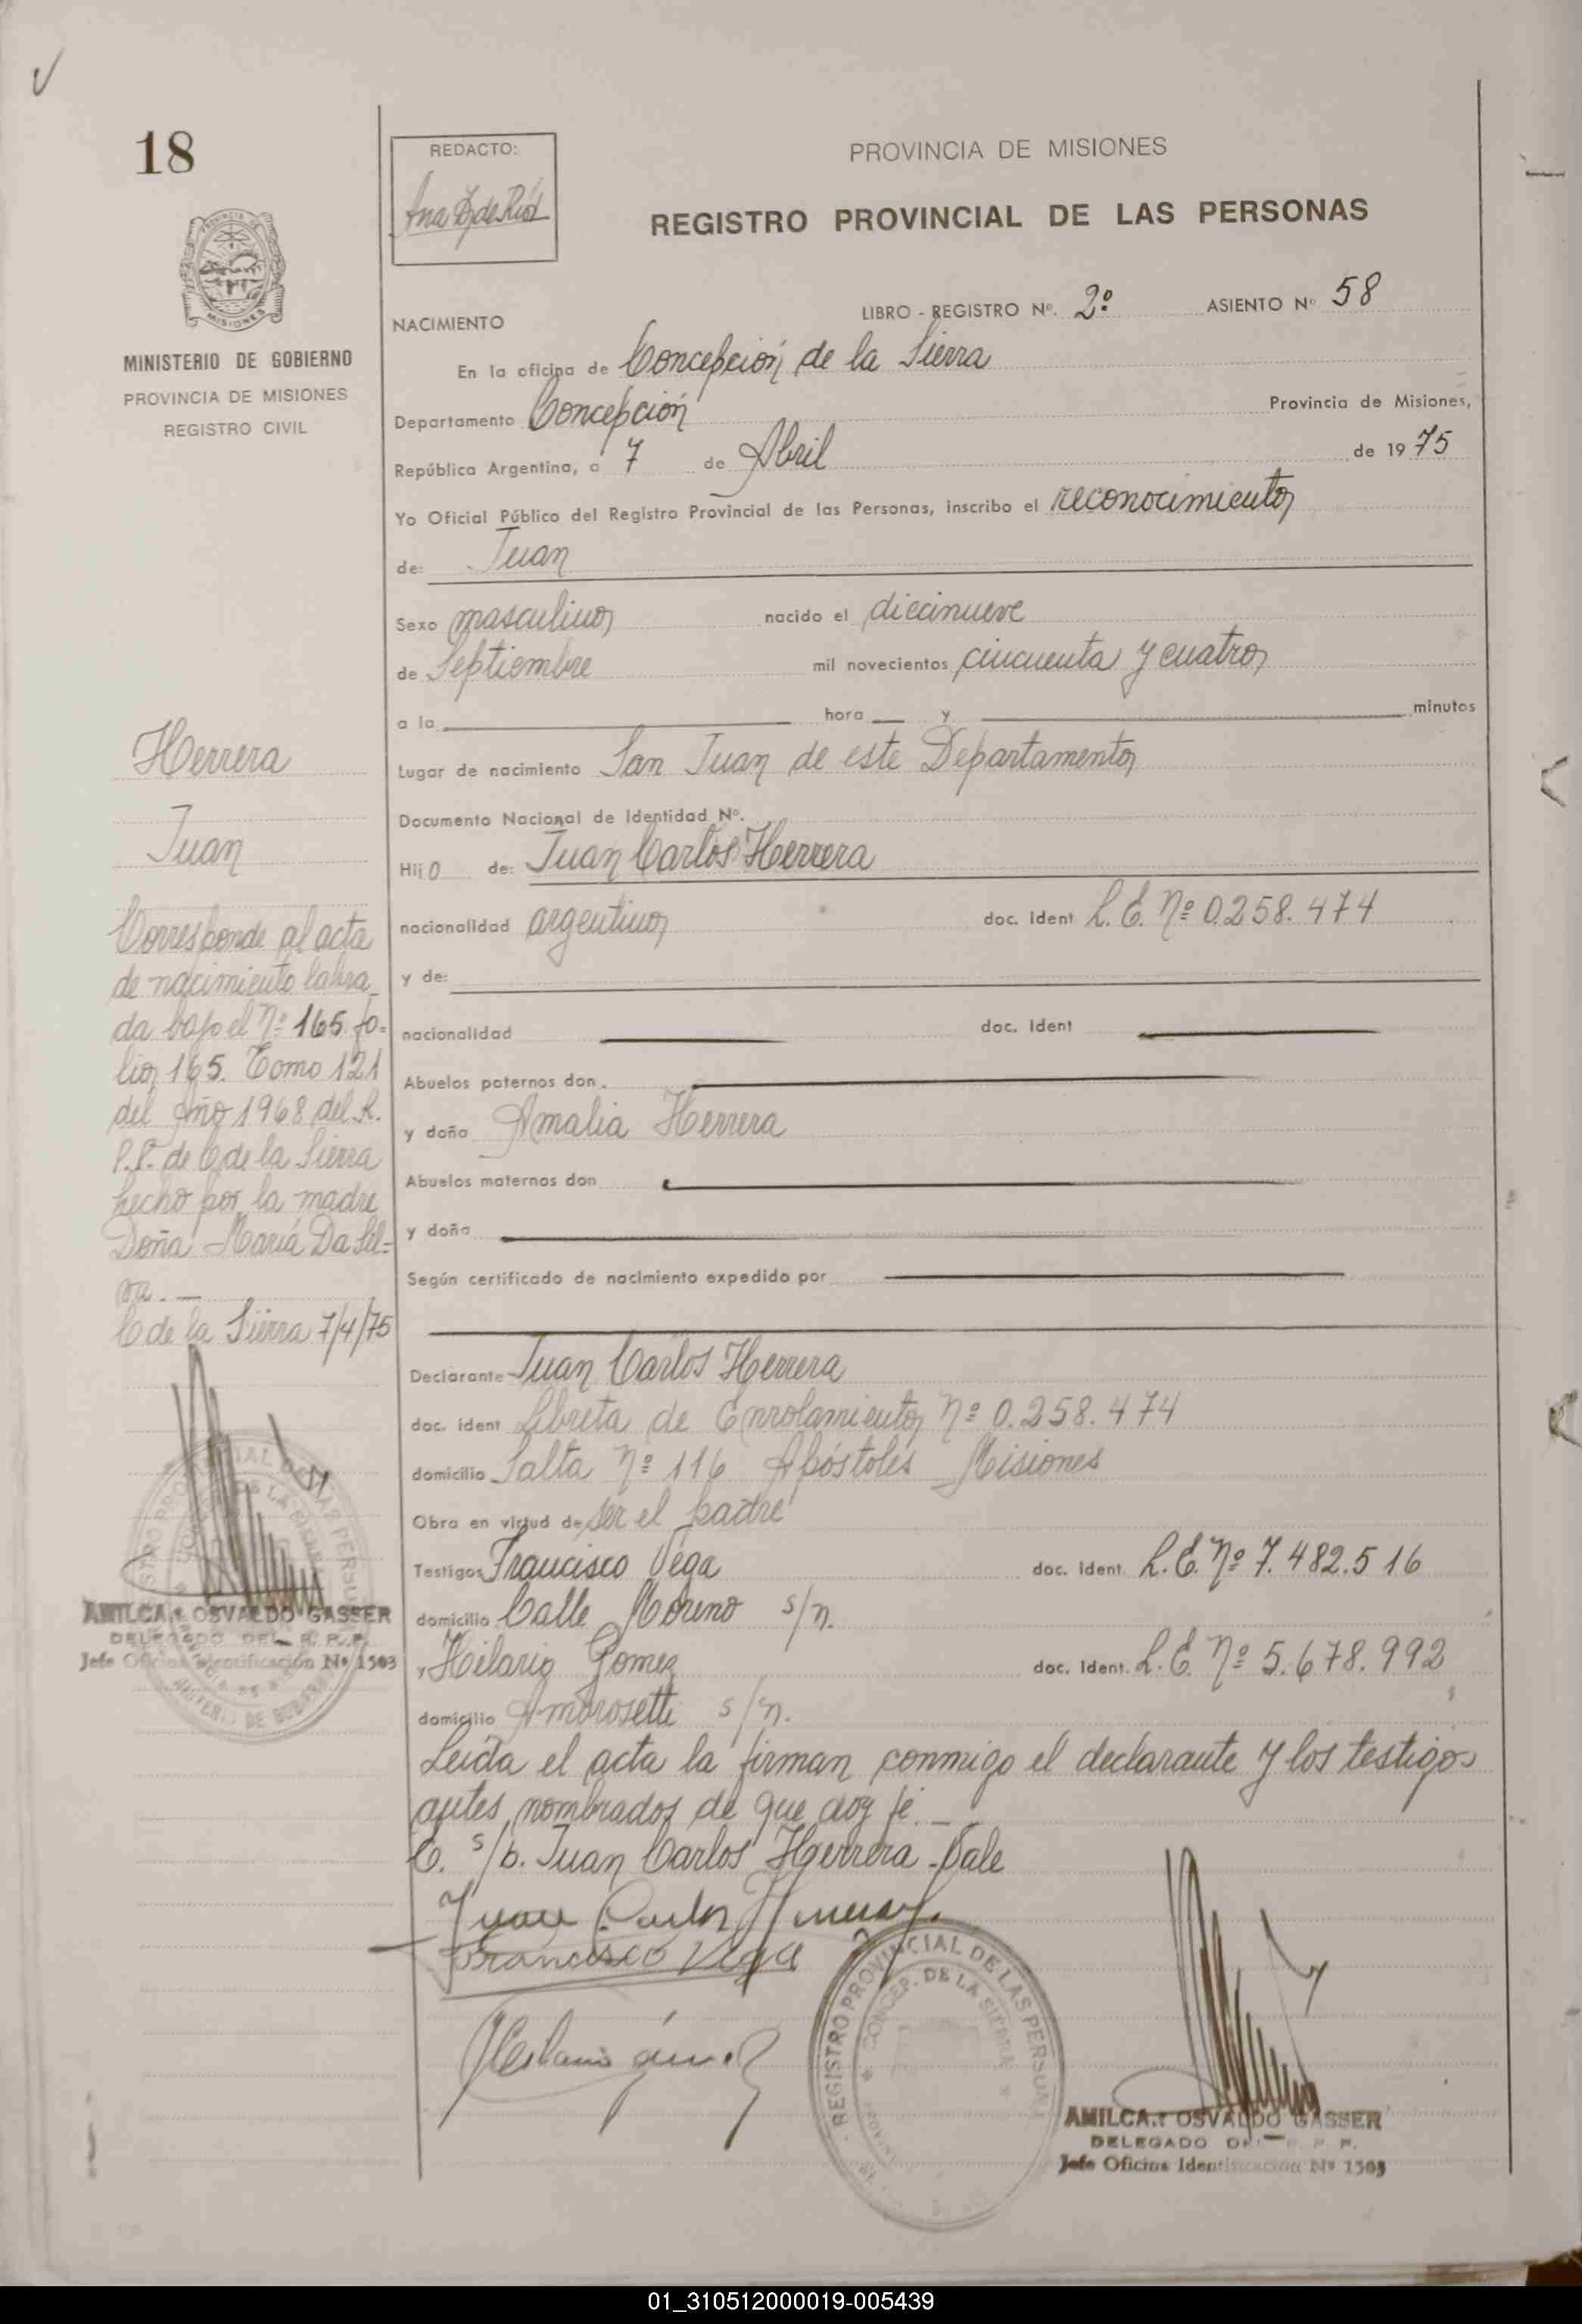 18
REDACTO:
PROVINCIA DE MISIONES
REGISTRO PROVINCIAL DE LAS PERSONAS
MISIONES
MINISTERIO DE GOBIERNO
PROVINCIA DE MISIONES
REGISTRO CIVIL
NACIMIENTO
LIBRO - REGISTRO Nº. 2º ASIENTO Nº 58
En la oficina de Concepción de la Sierra
Departamento Concepción Provincia de Misiones,
República Argentina, a 7 de Abril de 1975
Yo Oficial Público del Registro Provincial de las Personas, inscribo el reconocimiento
de: Juan
Sexo masculino nacido el diecinueve
de Septiembre mil novecientos cincuenta y cuatro
a la hora y minutos
Lugar de nacimiento San Juan de este Departamento
Documento Nacional de Identidad Nº.
Hijo de: Juan Carlos Herrera
nacionalidad argentino doc. ident L. E. Nº 0.258.474
y de:
nacionalidad doc. ident
Abuelos paternos don
y doña Amalia Herrera
Abuelos maternos don
y doña
Según certificado de nacimiento expedido por
Declarante Juan Carlos Herrera
doc. ident Libreta de Enrolamiento Nº 0.258.474
domicilio Salta Nº 116 Apóstoles Misiones
Obra en virtud de ser el padre
Testigos Francisco Vega doc. ident. L. E. Nº 7.482.516
domicilio Calle Moreno s/n.
y Hilario Gomez doc. ident. L. E. Nº 5.678.992
domicilio Ambrosetti s/n.
Leída el acta la firman conmigo el declarante y los testigos
antes nombrados de que doy fé.—
E. s/b. Juan Carlos Herrera. Vale
Juan Carlos Herrera
Francisco Vega
Hilario Gómez
REGISTRO PROVINCIAL DE LAS PERSONAS
CONCEP. DE LA SIERRA
AMILCAR OSVALDO GASSER
DELEGADO DEL R. P. P.
Jefe Oficina Identificación Nº 1503
Herrera
Juan
Corresponde al acta
de nacimiento labra-
da bajo el Nº 165 fo-
lio 165. Tomo 121
del Año 1968 del R.
P.P. de C de la Sierra
hecho por la madre
Doña María Da Sil-
va.—
C de la Sierra 7/4/75
AMILCAR OSVALDO GASSER
DELEGADO DEL R. P. P.
Jefe Oficina Identificación Nº 1503
01_310512000019-005439